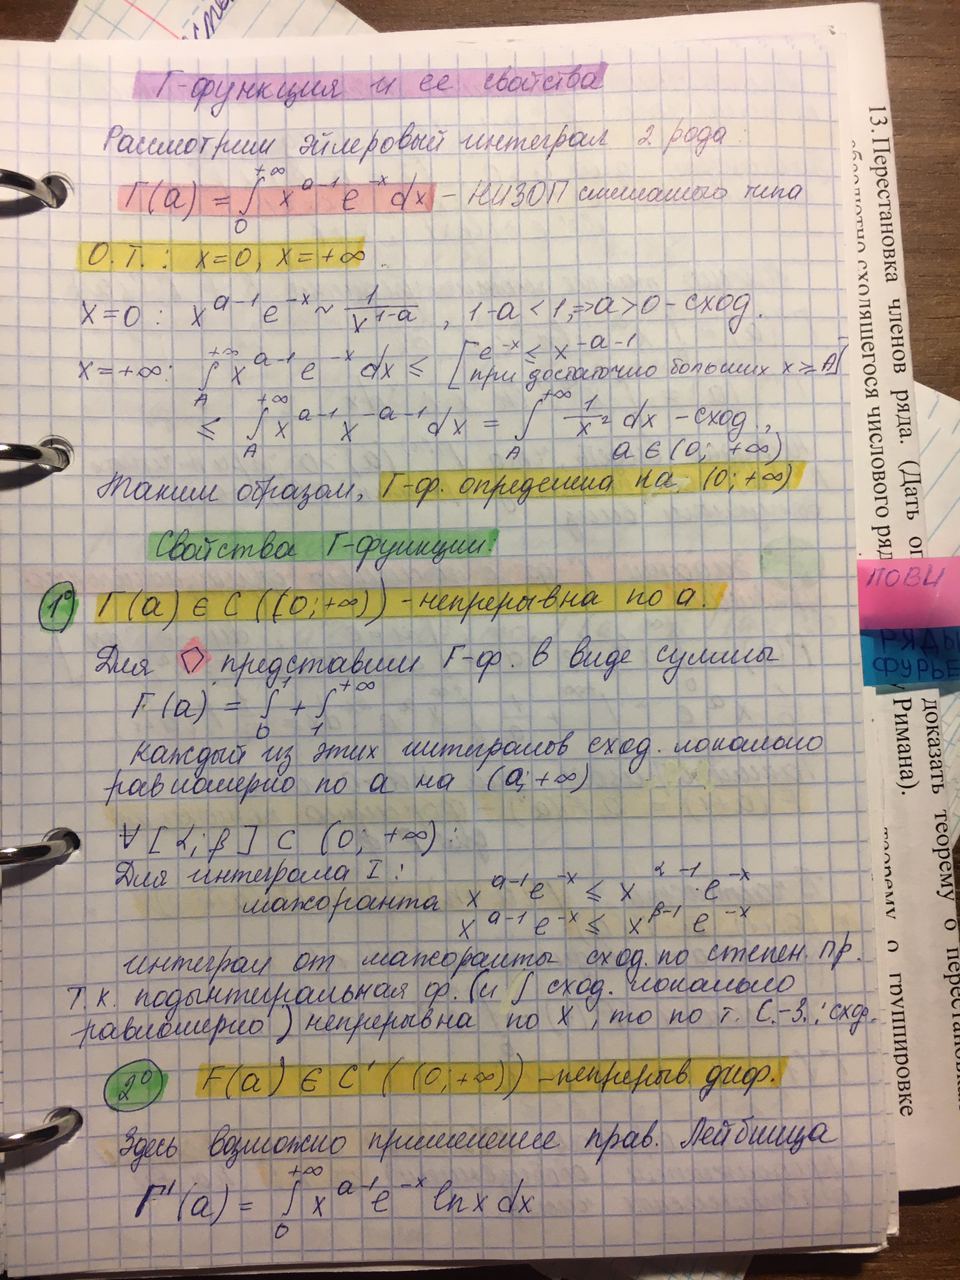 Г-функция и ее свойства
Рассмотрим эйлеровый интеграл 2 рода:
Г(a) = ∫₀^{+∞} x^{a-1} e^{-x} dx – НИЗОП смешаного типа
О.Т.: x=0, x=+∞.
x=0: x^{a-1} e^{-x} ~ 1/x^{1-a}, 1-a<1,⇒a>0 – сход.
x=+∞: ∫_A^{+∞} x^{a-1} e^{-x} dx ≤ [e^{-x} ≤ x^{-a-1}
при достаточно больших x ⩾ A]
≤ ∫_A^{+∞} x^{a-1} x^{-a-1} dx = ∫_A^{+∞} 1/x² dx – сход.,
a ∈ (0; +∞)
Таким образом, Г-ф. определена на (0; +∞)
Свойства Г-функции:
1⁰ Г(a) ∈ C((0;+∞)) – непрерывна по a.
Для представим Г-ф. в виде суммы
F(a) = ∫₀¹ + ∫₁^{+∞}
каждый из этих интегралов сход. локально
равномерно по a на (a;+∞)
∀ [α; β] ⊂ (0; +∞):
Для интеграла I:
мажоранта x^{a-1} e^{-x} ≤ x^{α-1} · e^{-x}
x^{a-1} e^{-x} ≤ x^{β-1} e^{-x}
интеграл от мажоранты сход. по степен. пр.
Т.к. подынтегральная ф. (и ∫ сход. локально
равномерно) непрерывна по x, то по т. С.-З.: сход.
2⁰ F(a) ∈ C'((0;+∞)) – непрерыв. диф.
Здесь возможно применение прав. Лейбница
Г'(a) = ∫₀^{+∞} x^{a-1} e^{-x} ln x dx
13. Перестановка членов ряда. (Дать
абсолютно сходящегося числового ряд
ПОВИ
РЯДЫ
ФУРЬЕ
доказать теорему о перестановках
Римана).
теорему о группировке